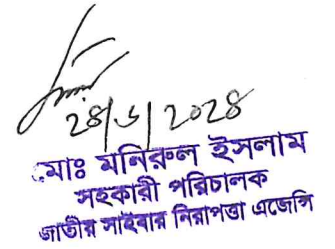 ২৪/৬/২০২৪
মোঃ মনিরুল ইসলাম
সহকারী পরিচালক
জাতীয় সাইবার নিরাপত্তা এজেন্সি